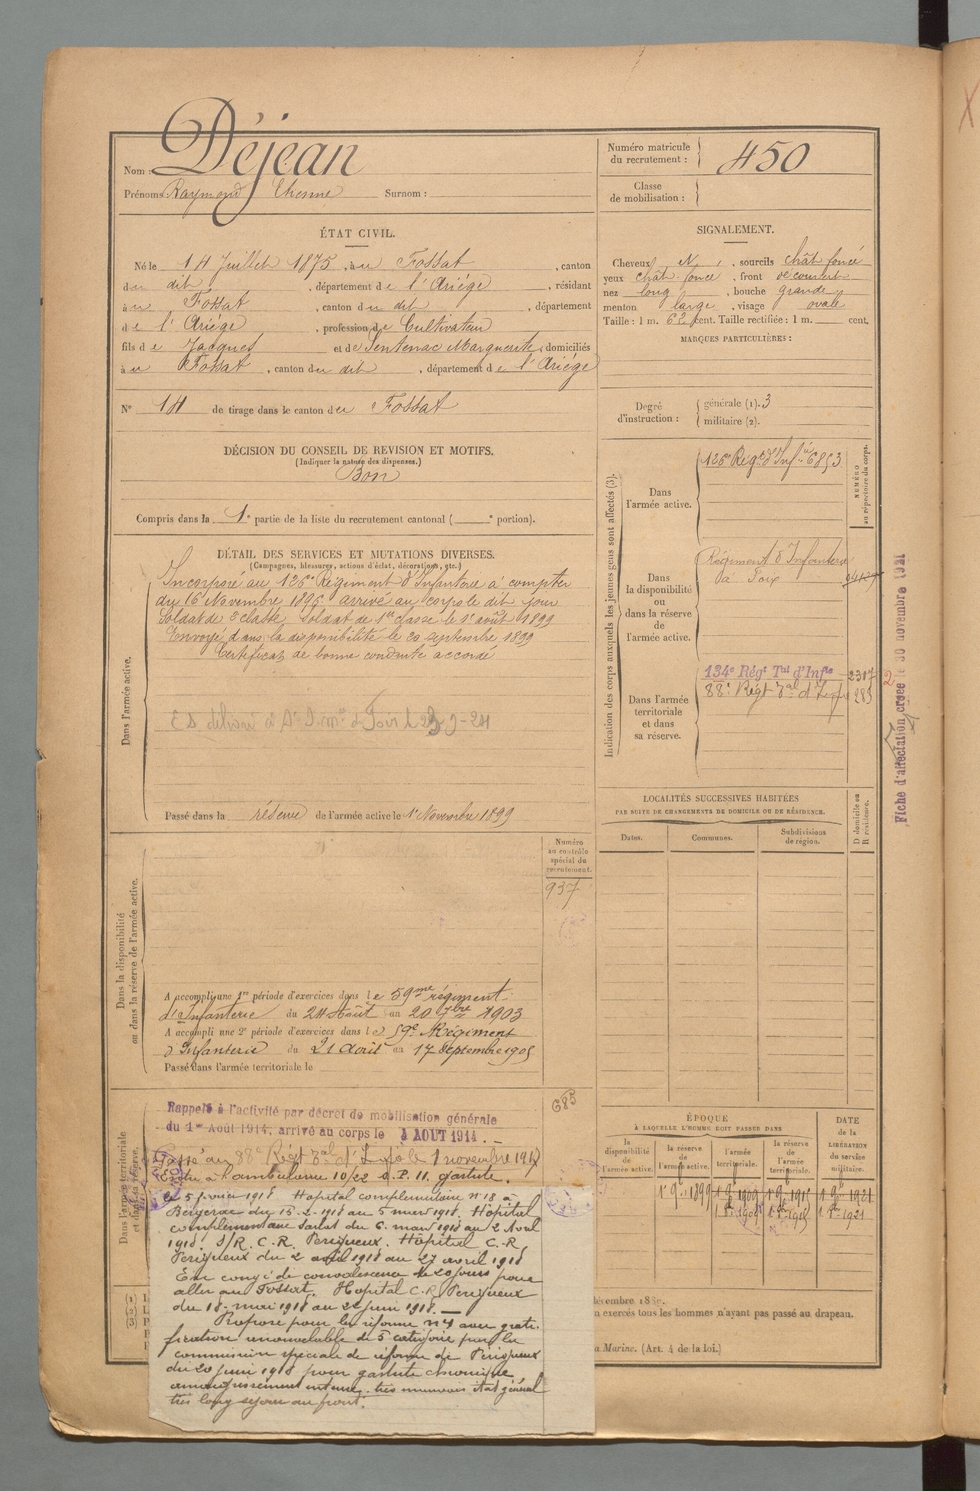 Nom : Déjean
Prénoms : Raymond Etienne Surnom :
Numéro matricule
du recrutement : 450
Classe
de mobilisation :
ÉTAT CIVIL.
Né le 14 Juillet 1875, à u Fossat, canton
du dit, département de l'Ariége, résidant
à u Fossat, canton du dit, département
de l'Ariége, profession de Cultivateur
fils de Jacques et de Sentenac Marguerite, domiciliés
à u Fossat, canton du dit, département de l'Ariége
N° 14 de tirage dans le canton du Fossat
DÉCISION DU CONSEIL DE REVISION ET MOTIFS.
(Indiquer la nature des dispenses.)
Bon
Compris dans la 1e partie de la liste du recrutement cantonal ( e portion).
SIGNALEMENT.
Cheveux N, sourcils chât foncé
yeux chât. foncé, front découvert
nez long, bouche grande
menton large, visage ovale
Taille : 1 m. 62 cent. Taille rectifiée : 1 m. cent.
MARQUES PARTICULIÈRES :
Degré
d'instruction :
générale (1). 3
militaire (2).
Indication des corps auxquels les jeunes gens sont affectés (3).
Dans
l'armée active.
126e Régt d'Infie 6853
NUMÉRO
au répertoire du corps.
Dans
la disponibilité
ou
dans la réserve
de
l'armée active.
Régiment d'Infanterie
de Foix
Dans l'armée
territoriale
et dans
sa réserve.
134e Régt Tal d'Infie 2317
88e Régt Tal d'Infie 283
2
Fiche d'affectation créée le 30 novembre 1921
DÉTAIL DES SERVICES ET MUTATIONS DIVERSES.
(Campagnes, blessures, actions d'éclat, décorations, etc.)
Dans l'armée active.
Incorporé au 126e Régiment d'Infanterie à compter
du 16 Novembre 1896 arrivé au corps le dit jour
Soldat de 2e classe, Soldat de 1re classe le 1er août 1899
Envoyé dans la disponibilité le 20 septembre 1899
Certificat de bonne conduite accordé
Passé dans la réserve de l'armée active le 1er Novembre 1899
Dans la disponibilité
ou dans la réserve de l'armée active.
Numéro
au contrôle
spécial du
recrutement.
937
A accompli une 1re période d'exercices dans le 59me régiment
d'Infanterie du 24 Août au 20 7bre 1903
A accompli une 2e période d'exercices dans le 59e Régiment
d'Infanterie du 21 août au 17 septembre 1905
Passé dans l'armée territoriale le
LOCALITÉS SUCCESSIVES HABITÉES
PAR SUITE DE CHANGEMENTS DE DOMICILE OU DE RÉSIDENCE.
Dates.
Communes.
Subdivisions
de région.
D domicile ou
R résidence.
Dans l'armée territoriale
et dans sa réserve.
685
Rappelé à l'activité par décret de mobilisation générale
du 1er Août 1914, arrivé au corps le 4 AOUT 1914.
Passé au 88e Régt Tal d'Infie le 1 novembre 191
Entré à l'ambulance 10/22 S.P. 11. gastrite.
le 5 février 1918 Hopital complémentaire n° 18 à
Bergerac du 15-2-1918 au 5 mars 1918. Hôpital
complémentaire Sarlat du 6 mars 1918 au 2 Avril
1918. S/R. C.R. Périgueux. Hôpital C.R.
Périgueux du 2 avril 1918 au 27 avril 1918
En congé de convalescence de 20 jours pour
aller au Fossat. Hopital C.R. Périgueux
du 18 mai 1918 au 22 juin 1918.
Proposé pour la réforme n° 1 avec grati
fication renouvelable de 5e catégorie par la
commission spéciale de réforme de Périgueux
du 20 juin 1918 pour gastrite chronique
amaigrissement intense, très mauvais état général
très long séjour au front.
ÉPOQUE
À LAQUELLE L'HOMME DOIT PASSER DANS
la
disponibilité
de
l'armée active.
la réserve
de
l'armée active.
l'armée
territoriale.
la réserve
de
l'armée
territoriale.
DATE
de la
LIBÉRATION
du service
militaire.
1 9b 1899 1 9b 1909 1 9b 1915 1 9b 1921
exercés tous les hommes n'ayant pas passé au drapeau.
Marine. (Art. 4 de la loi.)